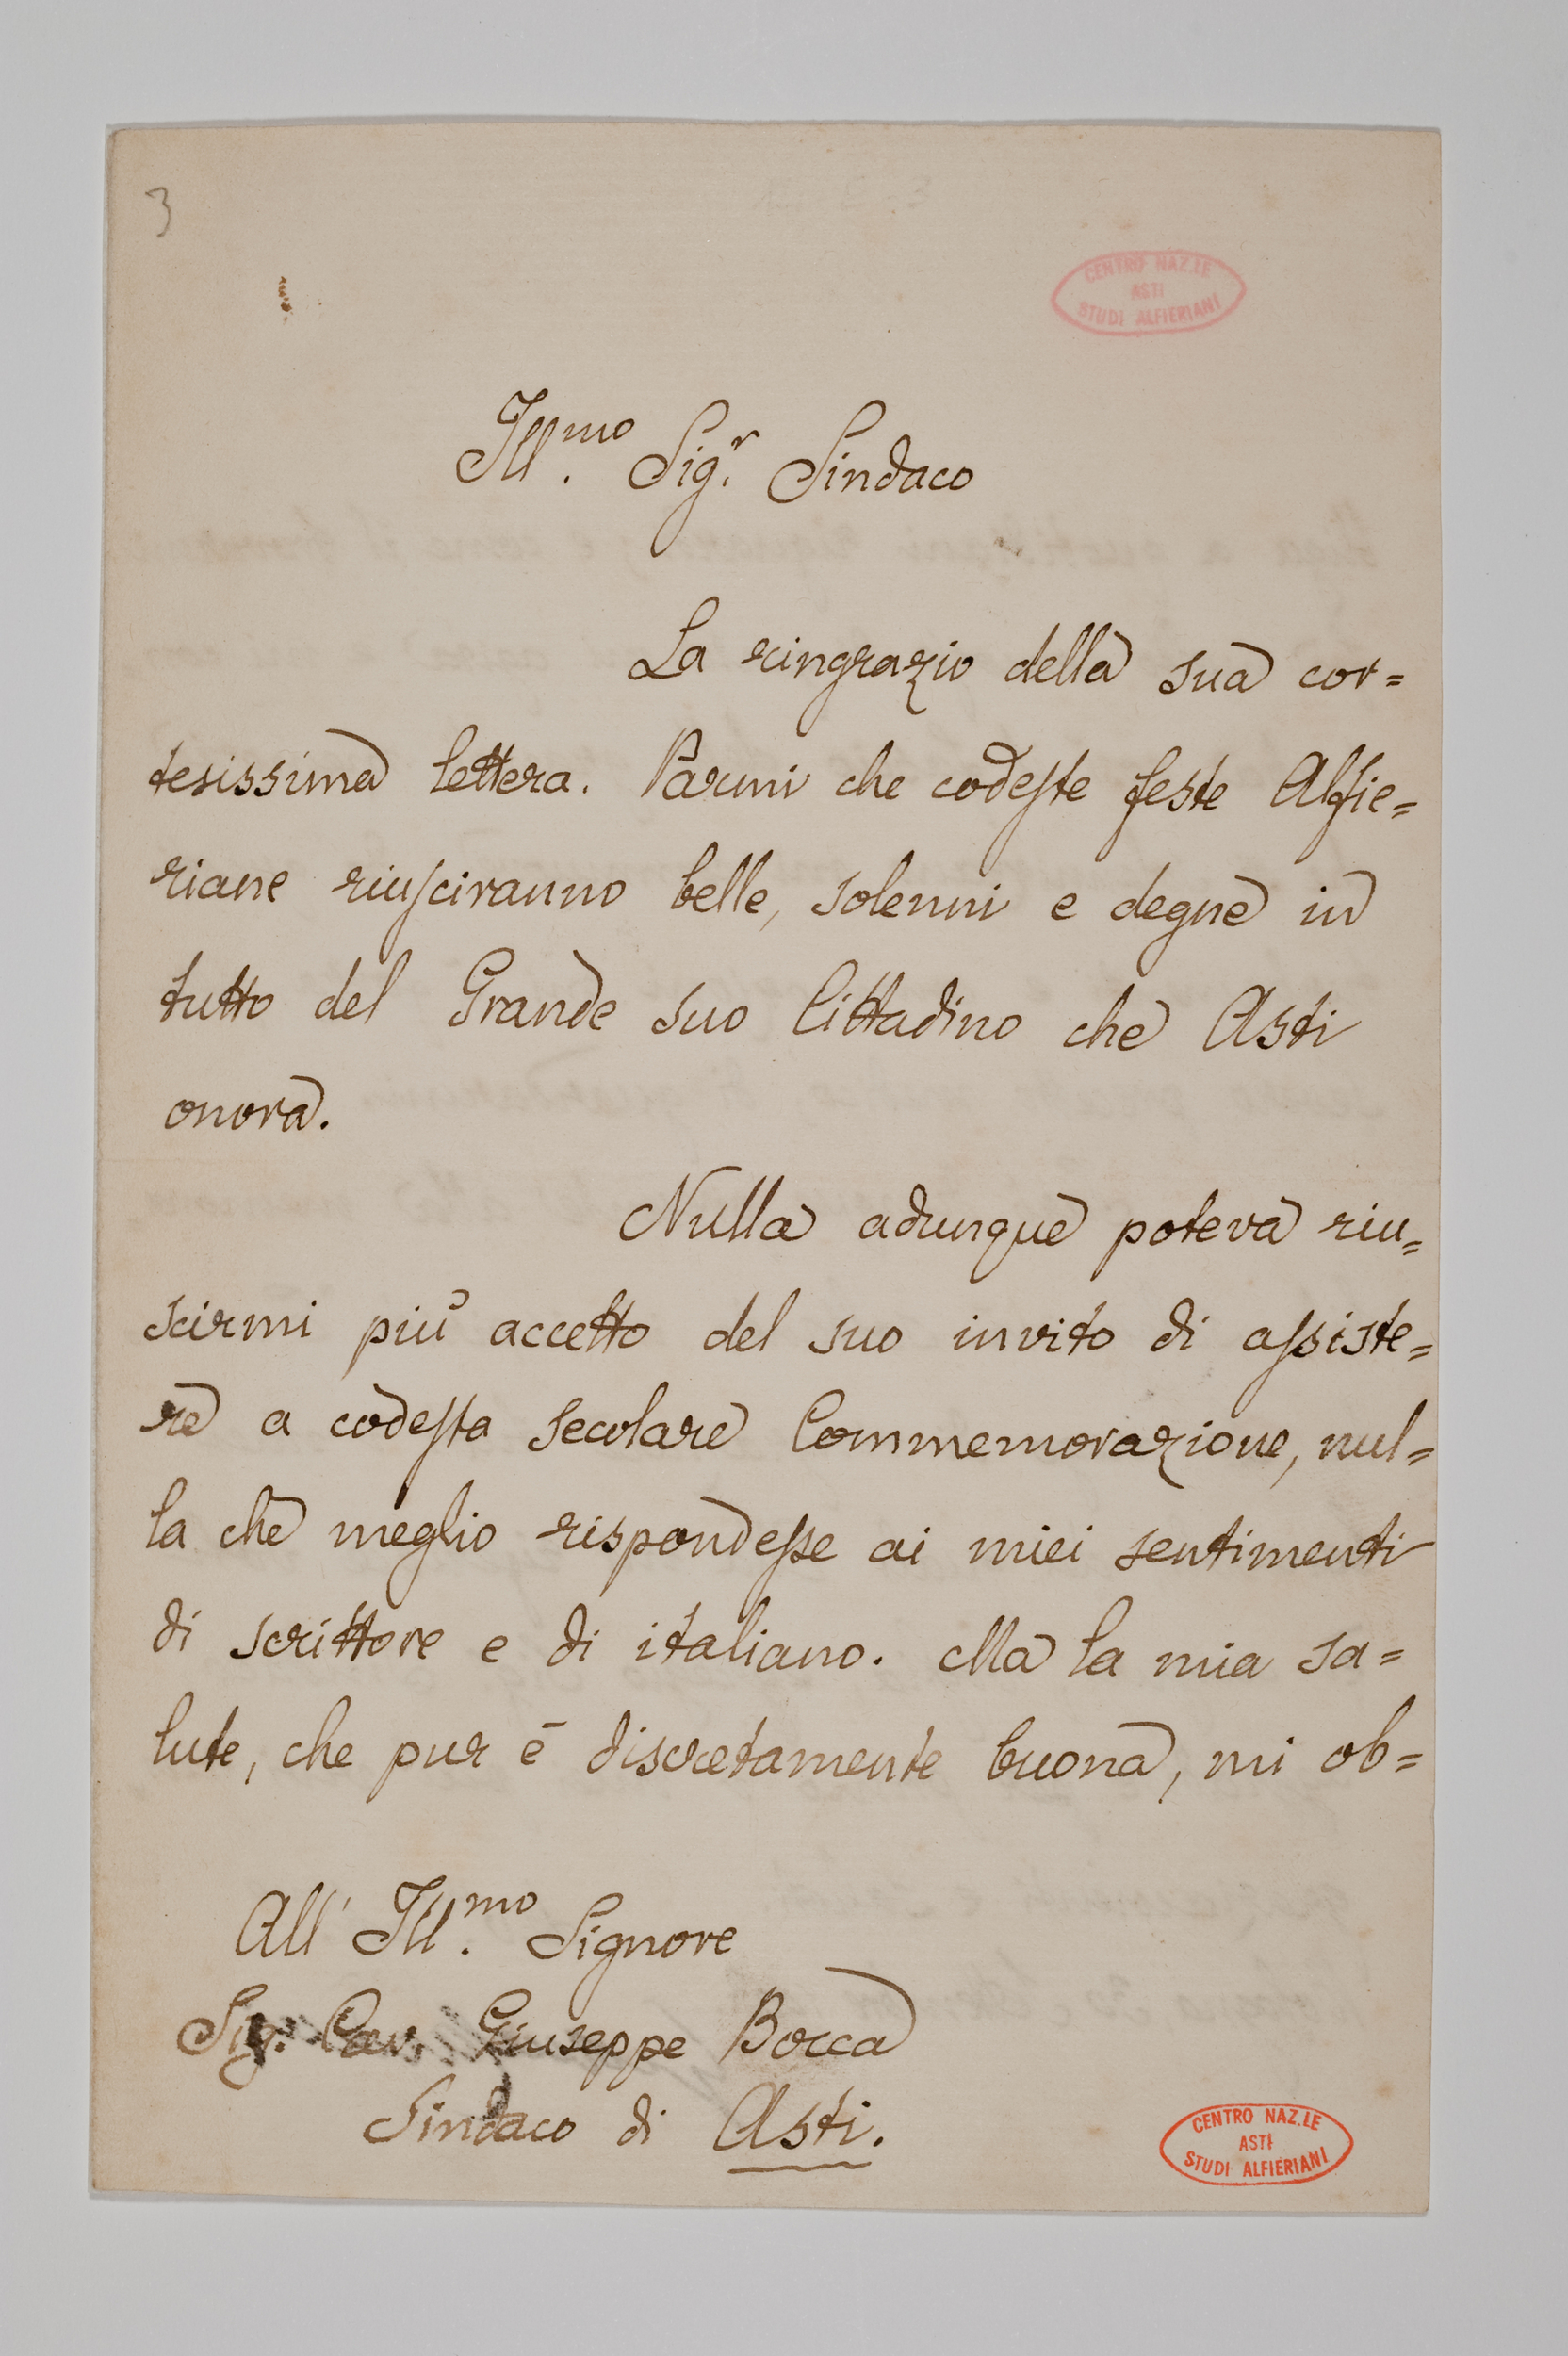 3
CENTRO NAZ.LE
ASTI
STUDI ALFIERIANI
Ill.mo Sig.r Sindaco
La ringrazio della sua cor=
tesissima lettera. Parmi che codeste feste Alfie=
riane riusciranno belle, solenni e degne in
tutto del Grande suo Cittadino che Asti
onora.
Nulla adunque poteva riu=
scirmi più accetto del suo invito di assiste=
re a codesta secolare Commemorazione, nul=
la che meglio rispondesse ai miei sentimenti
di scrittore e di italiano. Ma la mia sa=
lute, che pur è discretamente buona, mi ob=
All' Ill.mo Signore
Sig. Cav. Giuseppe Bocca
Sindaco di Asti.
CENTRO NAZ.LE
ASTI
STUDI ALFIERIANI